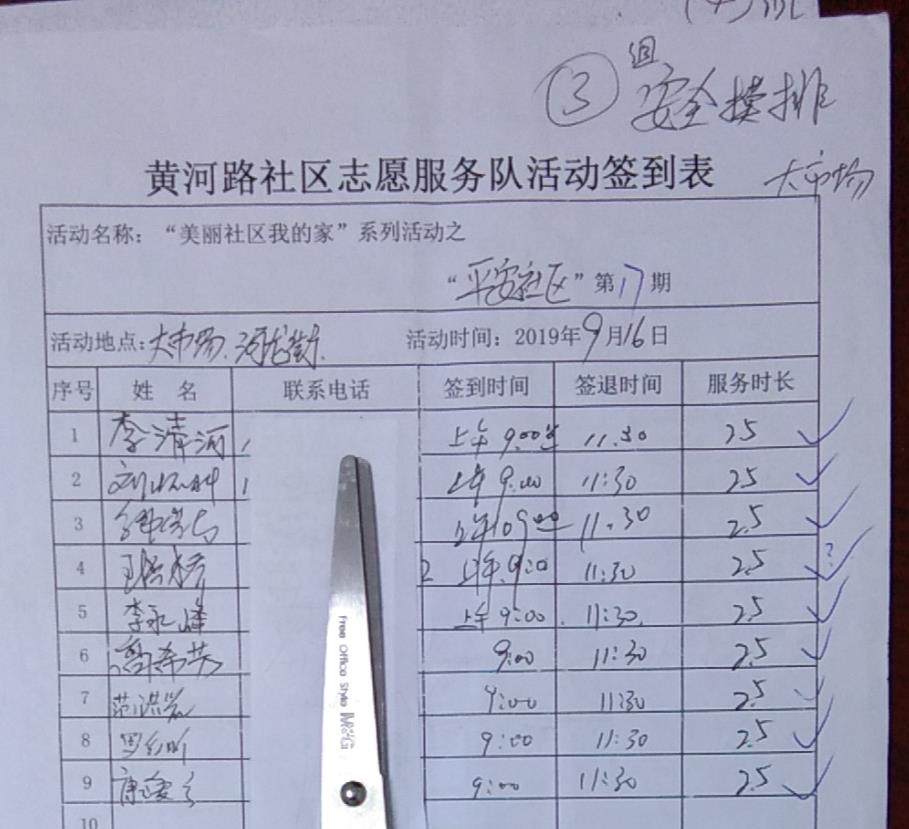 ③组
安全摸排
黄河路社区志愿服务队活动签到表 大市场
活动名称：“美丽社区我的家”系列活动之
“平安社区”第17期
活动地点：大市场、河龙街 活动时间：2019年9月16日
序号 姓 名 联系电话 签到时间 签退时间 服务时长
1 李清河 上午 9:00 11:30 2.5
2 上午 9:00 11:30 2.5
3 上午 9:00 11:30 2.5
4 上午 9:00 11:30 2.5 ?
5 李永峰 上午 9:00 11:30 2.5
6 9:00 11:30 2.5
7 9:00 11:30 2.5
8 9:00 11:30 2.5
9 9:00 11:30 2.5
10
Free Office Style M&G